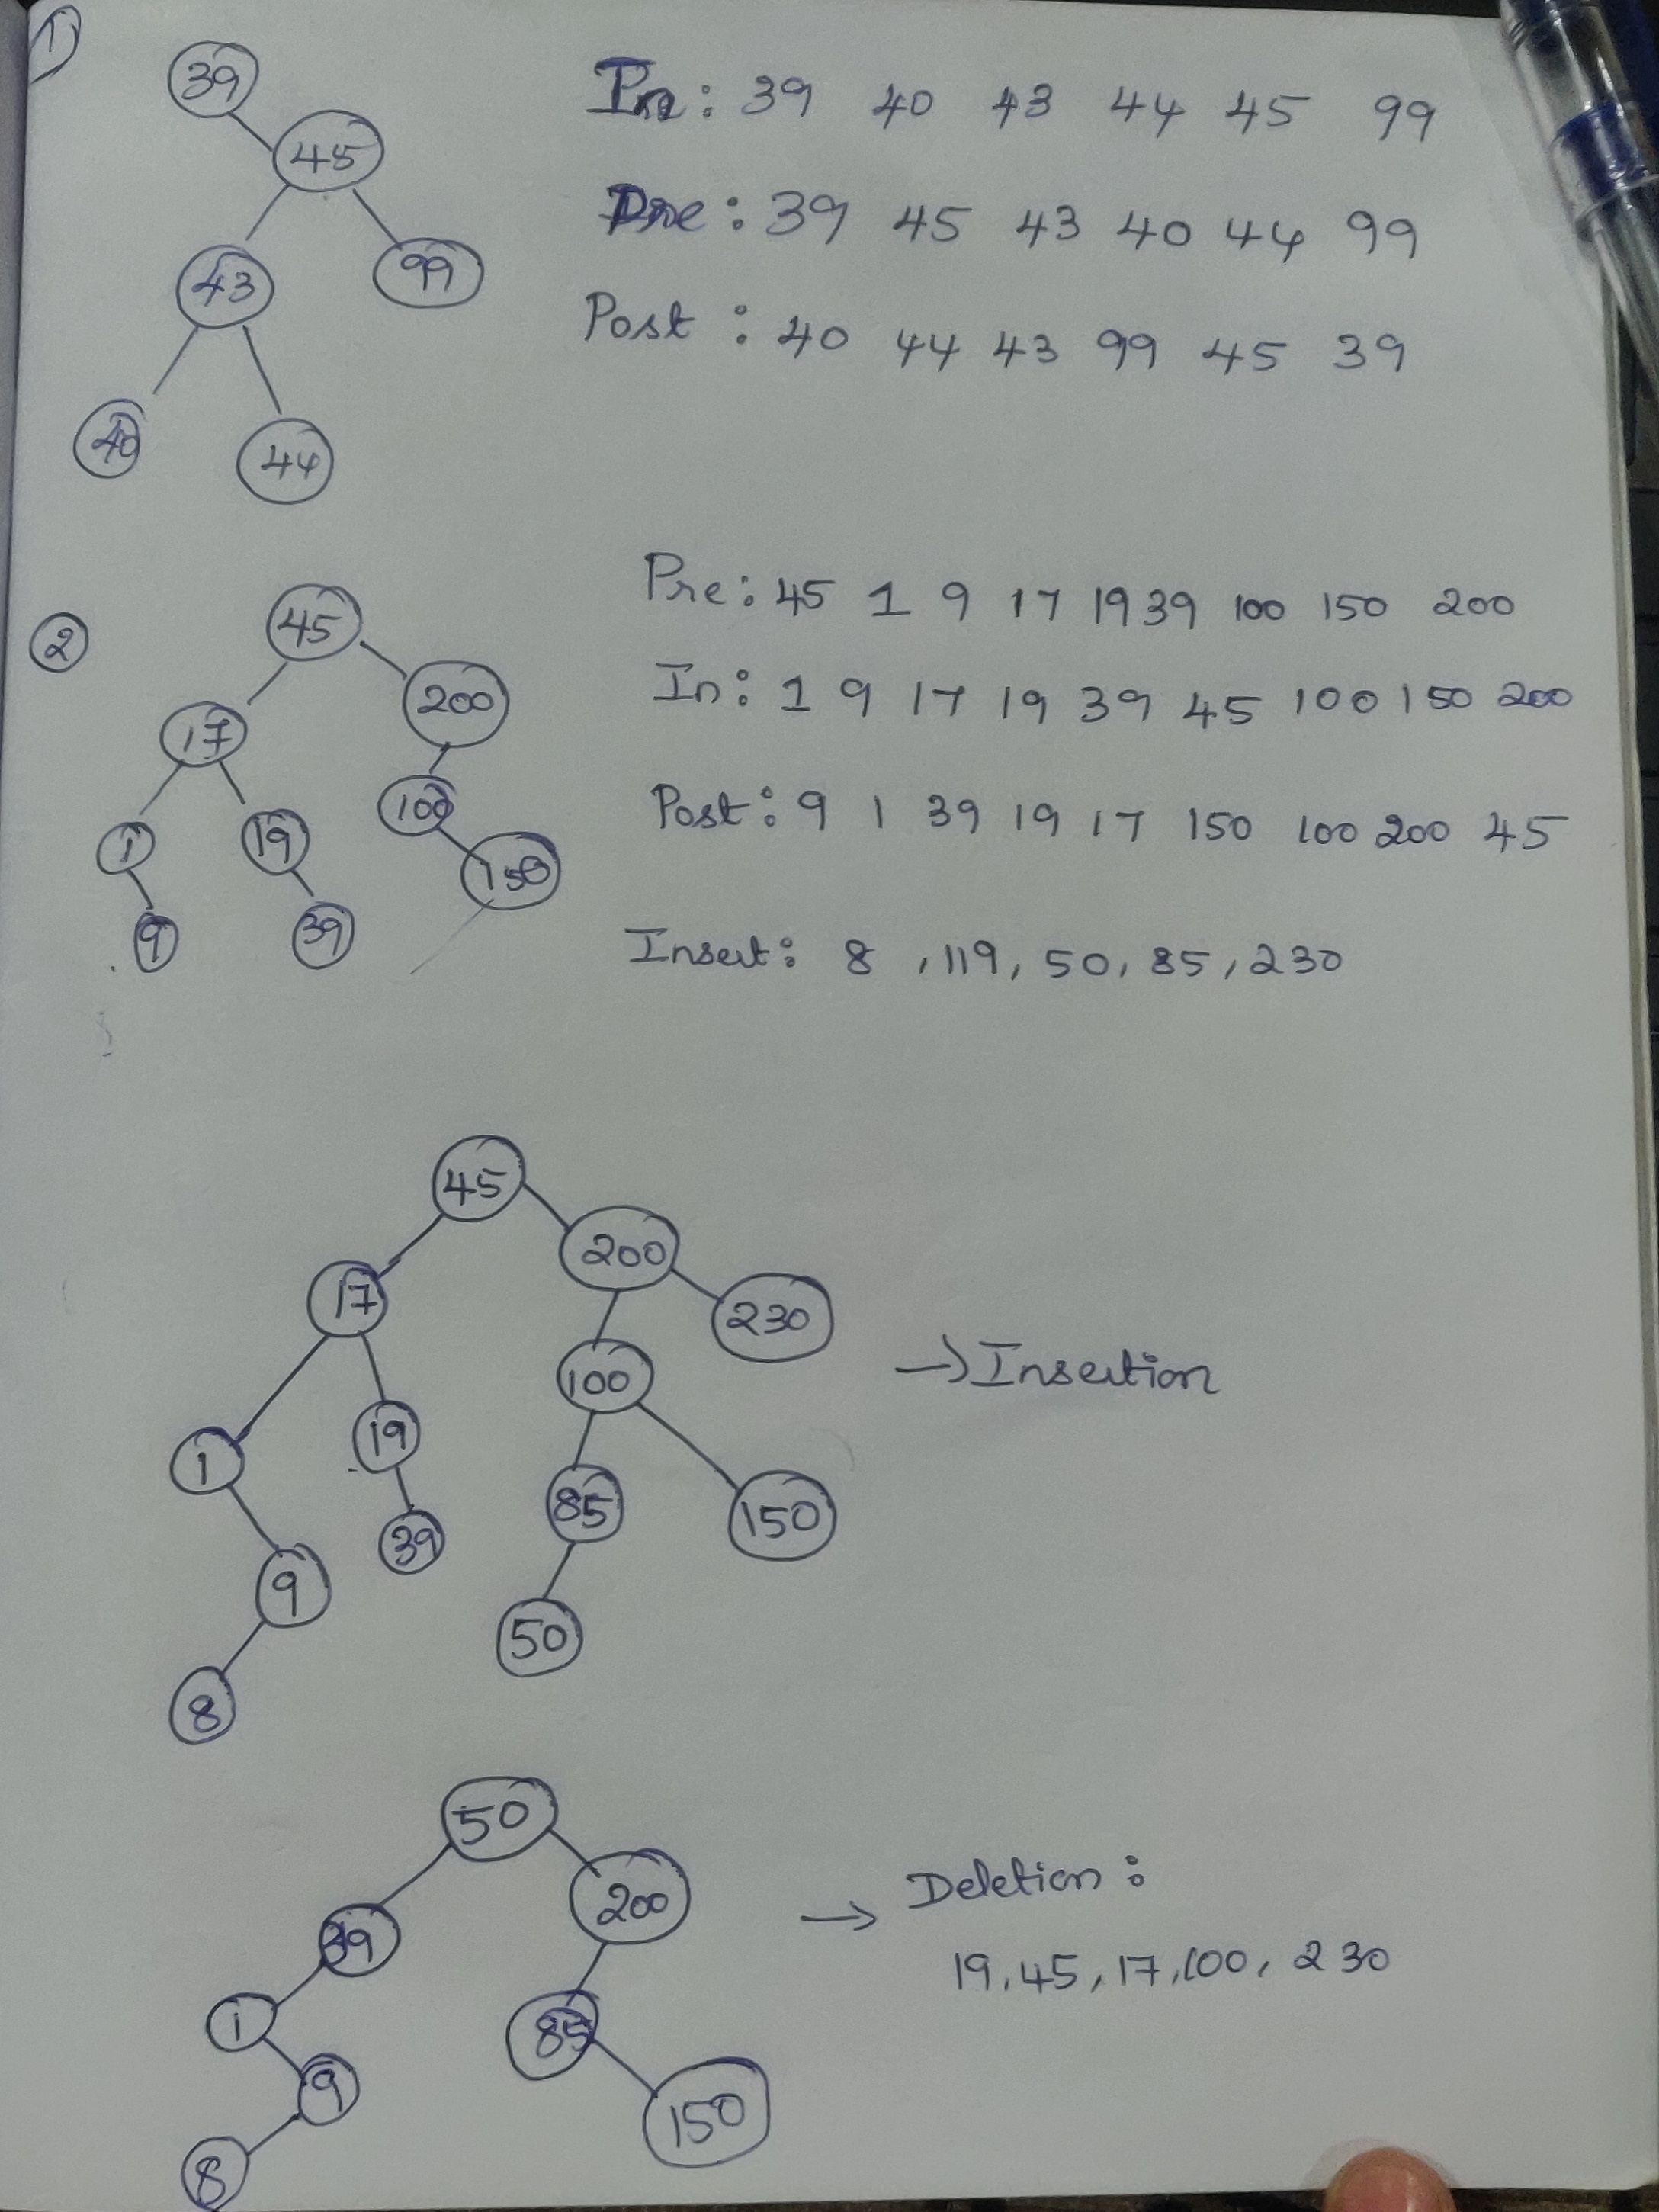 1)
39
45
43
99
40
44
In: 39 40 43 44 45 99
Pre: 39 45 43 40 44 99
Post: 40 44 43 99 45 39
2
45
17
200
1
19
100
9
39
150
Pre: 45 1 9 17 19 39 100 150 200
In: 1 9 17 19 39 45 100 150 200
Post: 9 1 39 19 17 150 100 200 45
Insert: 8, 119, 50, 85, 230
45
17
200
230
1
19
100
9
39
85
150
8
50
→ Insertion
50
39
200
1
85
9
150
8
→ Deletion:
19, 45, 17, 100, 230